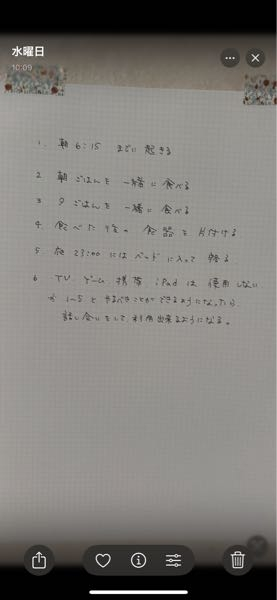 水曜日
10:09
1. 朝 6:15 までに 起きる
2 朝 ごはんを 一緒に 食べる
3 夕 ごはんを 一緒に 食べる
4. 食べた 後の 食器を 片付ける
5 夜 23:00 には ベッドに 入って 寝る
6 TV ゲーム 携帯 iPad は 使用 しない
が 1~5 と やるべきことが できるように なったら
話し合いをして 利用 出来る ように なる。